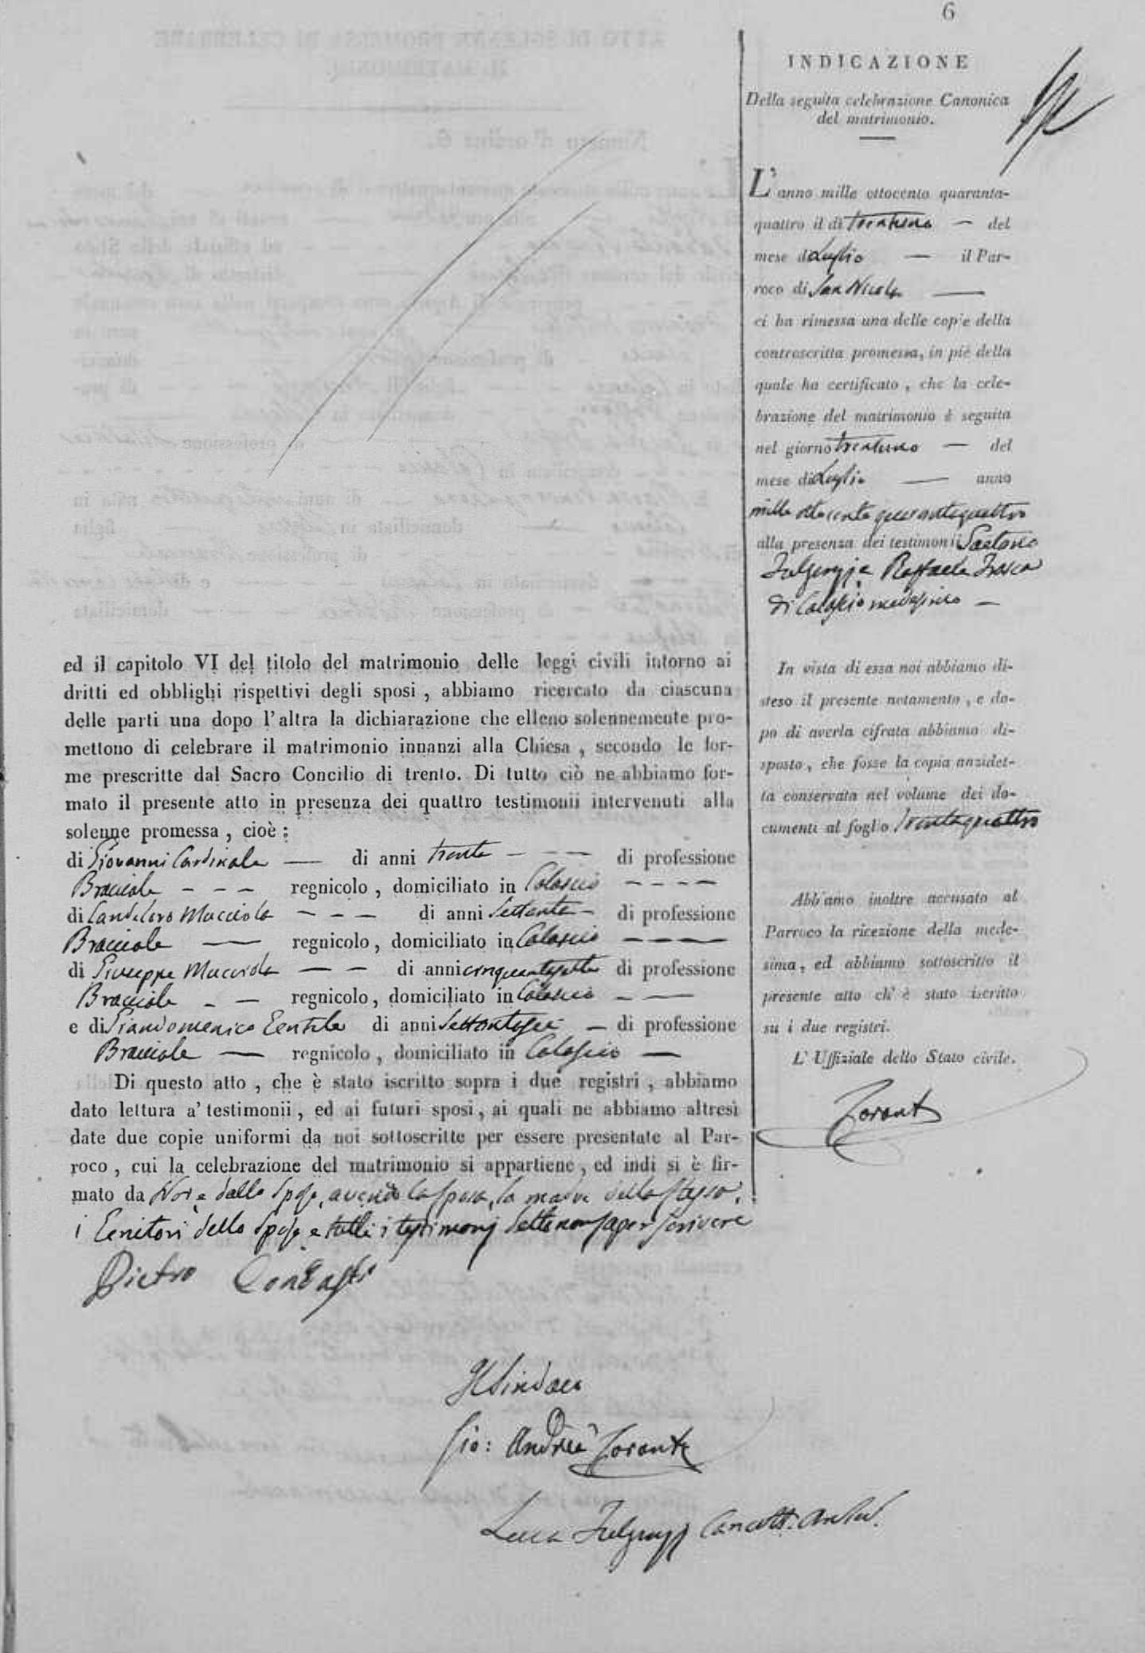 6
ed il capitolo VI del titolo del matrimonio delle leggi civili intorno ai
dritti ed obblighi rispettivi degli sposi, abbiamo ricercato da ciascuna
delle parti una dopo l'altra la dichiarazione che elleno solennemente pro-
mettono di celebrare il matrimonio innanzi alla Chiesa, secondo le for-
me prescritte dal Sacro Concilio di trento. Di tutto ciò ne abbiamo for-
mato il presente atto in presenza dei quattro testimonii intervenuti alla
solenne promessa, cioè:
di Giovanni Cardinale — di anni trenta - - - di professione
Bracciale - - - regnicolo, domiciliato in Calascio - - - -
di Candeloro Macciola - - - di anni Settanta - di professione
Bracciale — regnicolo, domiciliato in Calascio - - - -
di Giuseppe Macciola — - di anni cinquantasette di professione
Bracciale - - regnicolo, domiciliato in Calascio - —
e di Giandomenico Gentile di anni Settantasei - di professione
Bracciale — regnicolo, domiciliato in Calascio —
Di questo atto, che è stato iscritto sopra i due registri, abbiamo
dato lettura a' testimonii, ed ai futuri sposi, ai quali ne abbiamo altresì
date due copie uniformi da noi sottoscritte per essere presentate al Par-
roco, cui la celebrazione del matrimonio si appartiene, ed indi si è fir-
mato da Noi e dallo Sposo, avendo la sposa, la madre della stessa,
i Genitori dello Sposo e tutti i testimonj detto non saper scrivere
Pietro
Il Sindaco
Gio: Andrea
Luca Fulgenzj
INDICAZIONE
Della seguita celebrazione Canonica
del matrimonio.
L'anno mille ottocento quaranta-
quattro il dì trentuno — del
mese di Luglio — il Par-
roco di San Nicola —
ci ha rimessa una delle copie della
controscritta promessa, in piè della
quale ha certificato, che la cele-
brazione del matrimonio è seguita
nel giorno trentuno — del
mese di Luglio — anno
mille ottocento quarantaquattro
alla presenza dei testimonii Gaetano
Fulgenzj e Raffaele Frasca
di Calascio medesimo —
In vista di essa noi abbiamo di-
steso il presente notamento, e do-
po di averla cifrata abbiamo di-
sposto, che fosse la copia anzidet-
ta conservata nel volume dei do-
cumenti al foglio trentaquattro
Abbiamo inoltre accusato al
Parroco la ricezione della mede-
sima, ed abbiamo sottoscritto il
presente atto ch' è stato iscritto
su i due registri.
L' Uffiziale dello Stato civile.